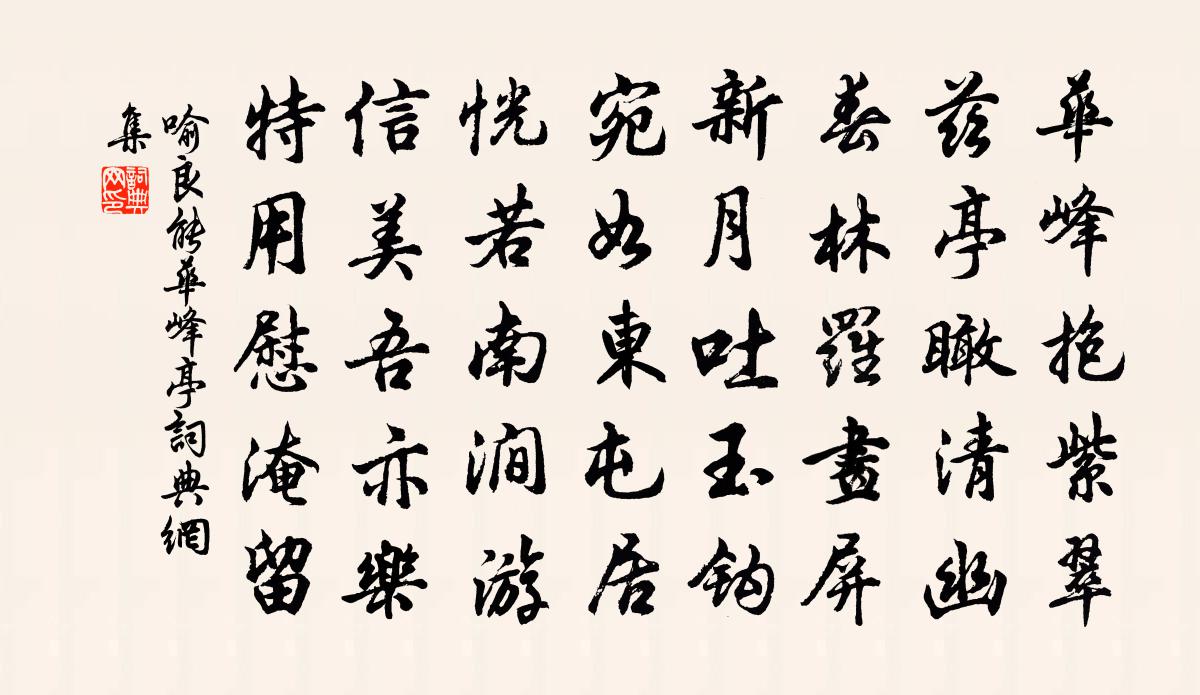 華峰抱紫翠
茲亭瞰清幽
春林羅畫屏
新月吐玉鈎
宛如東屯居
恍若南澗游
信美吾亦樂
特用慰淹留
喻良能華峰亭詞典網
集
詞典
网印